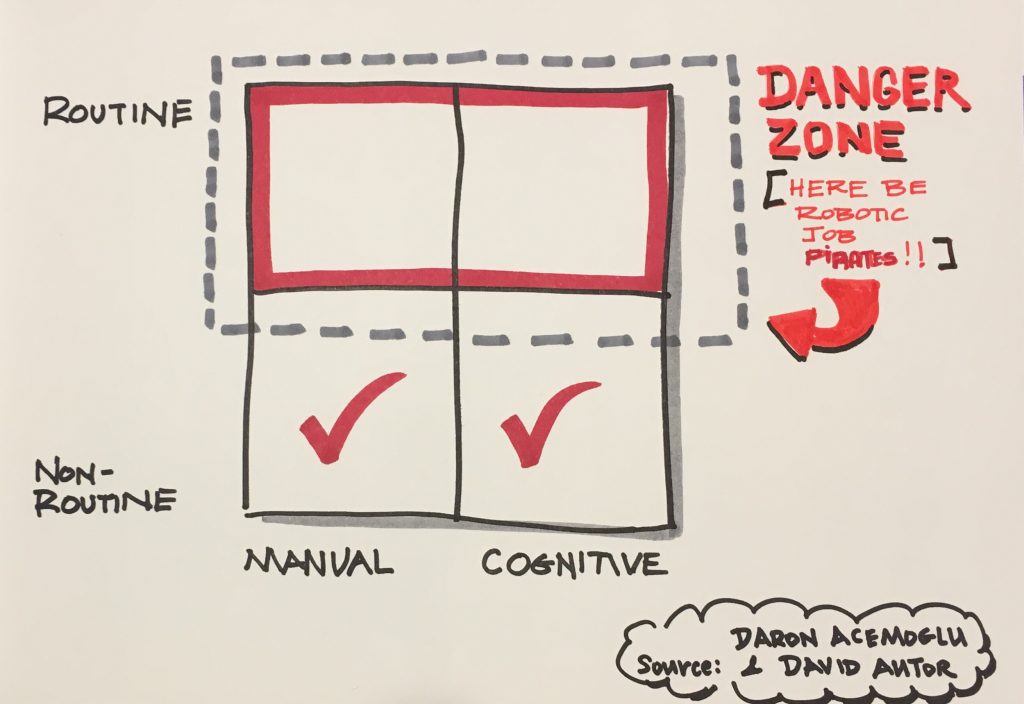 ROUTINE
DANGER
ZONE
[HERE BE
ROBOTIC
JOB
PIRATES!!]
NON-
ROUTINE
MANUAL
COGNITIVE
DARON ACEMOGLU
Source: & DAVID AUTOR